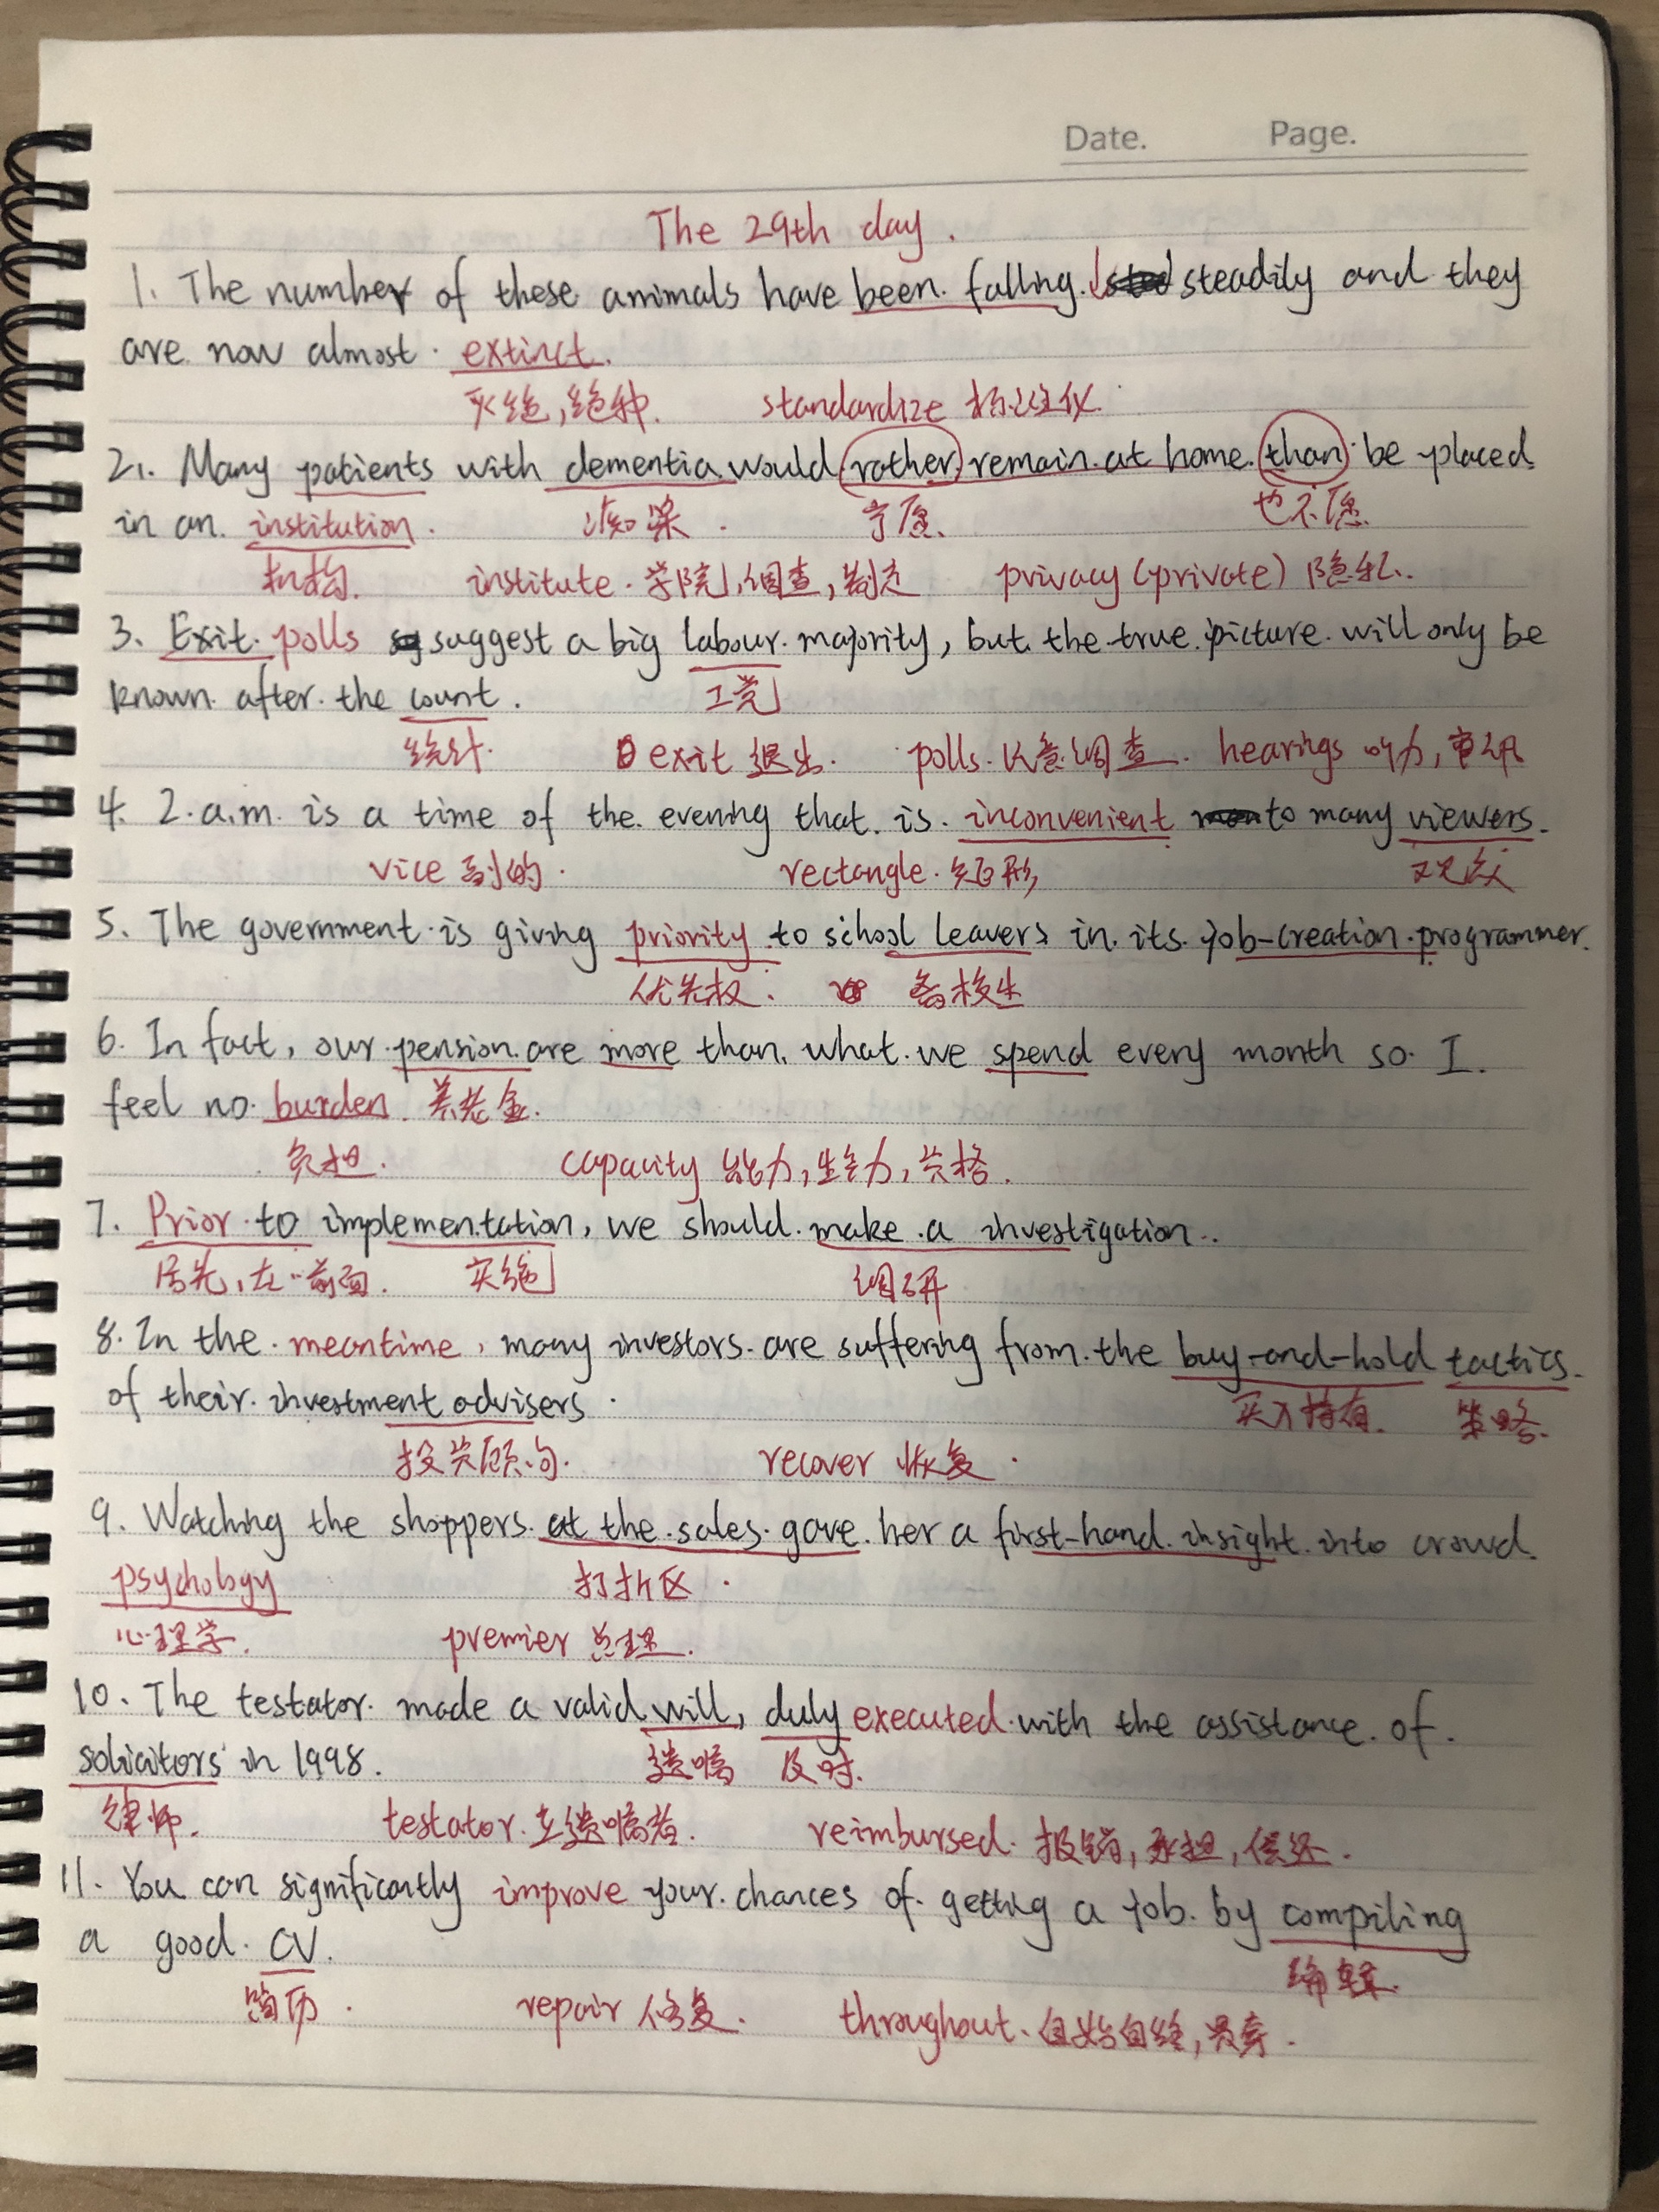 Date. Page.
The 29th day.
1. The number of these animals have been falling steadily and they
are now almost extinct.
灭绝,绝种. standardize 标准化.
2. Many patients with dementia would rather remain at home than be placed
in an institution. 痴呆. 宁愿. 也不愿.
机构. institute. 学院,调查,制定 privacy (private) 隐私.
3. Exit polls suggest a big labour majority, but the true picture will only be
known after the count. 工党
统计. exit 退出. polls. 民意调查. hearings 听力,审讯
4. 2.a.m. is a time of the evening that is inconvenient to many viewers.
vice 副的. rectangle. 矩形 观众
5. The government is giving priority to school leavers in its job-creation programmer.
优先权. 离校生
6. In fact, our pension are more than what we spend every month so I
feel no burden. 养老金.
负担. capacity 能力,生产力,资格.
7. Prior to implementation, we should make a investigation.
居先,在…前面. 实施 调研
8. In the meantime, many investors are suffering from the buy-and-hold tactics.
of their investment advisers. 买入持有. 策略.
投资顾问. recover 恢复.
9. Watching the shoppers at the sales gave her a first-hand insight into crowd
psychology 打折区.
心理学. premier 总理.
10. The testator made a valid will, duly executed with the assistance of
solicitors in 1998. 遗嘱 及时.
律师. testator. 立遗嘱者. reimbursed. 报销,承担,偿还.
11. You can significantly improve your chances of getting a job by compiling
a good CV. 编辑.
简历. repair 修复. throughout. 自始自终,贯穿.